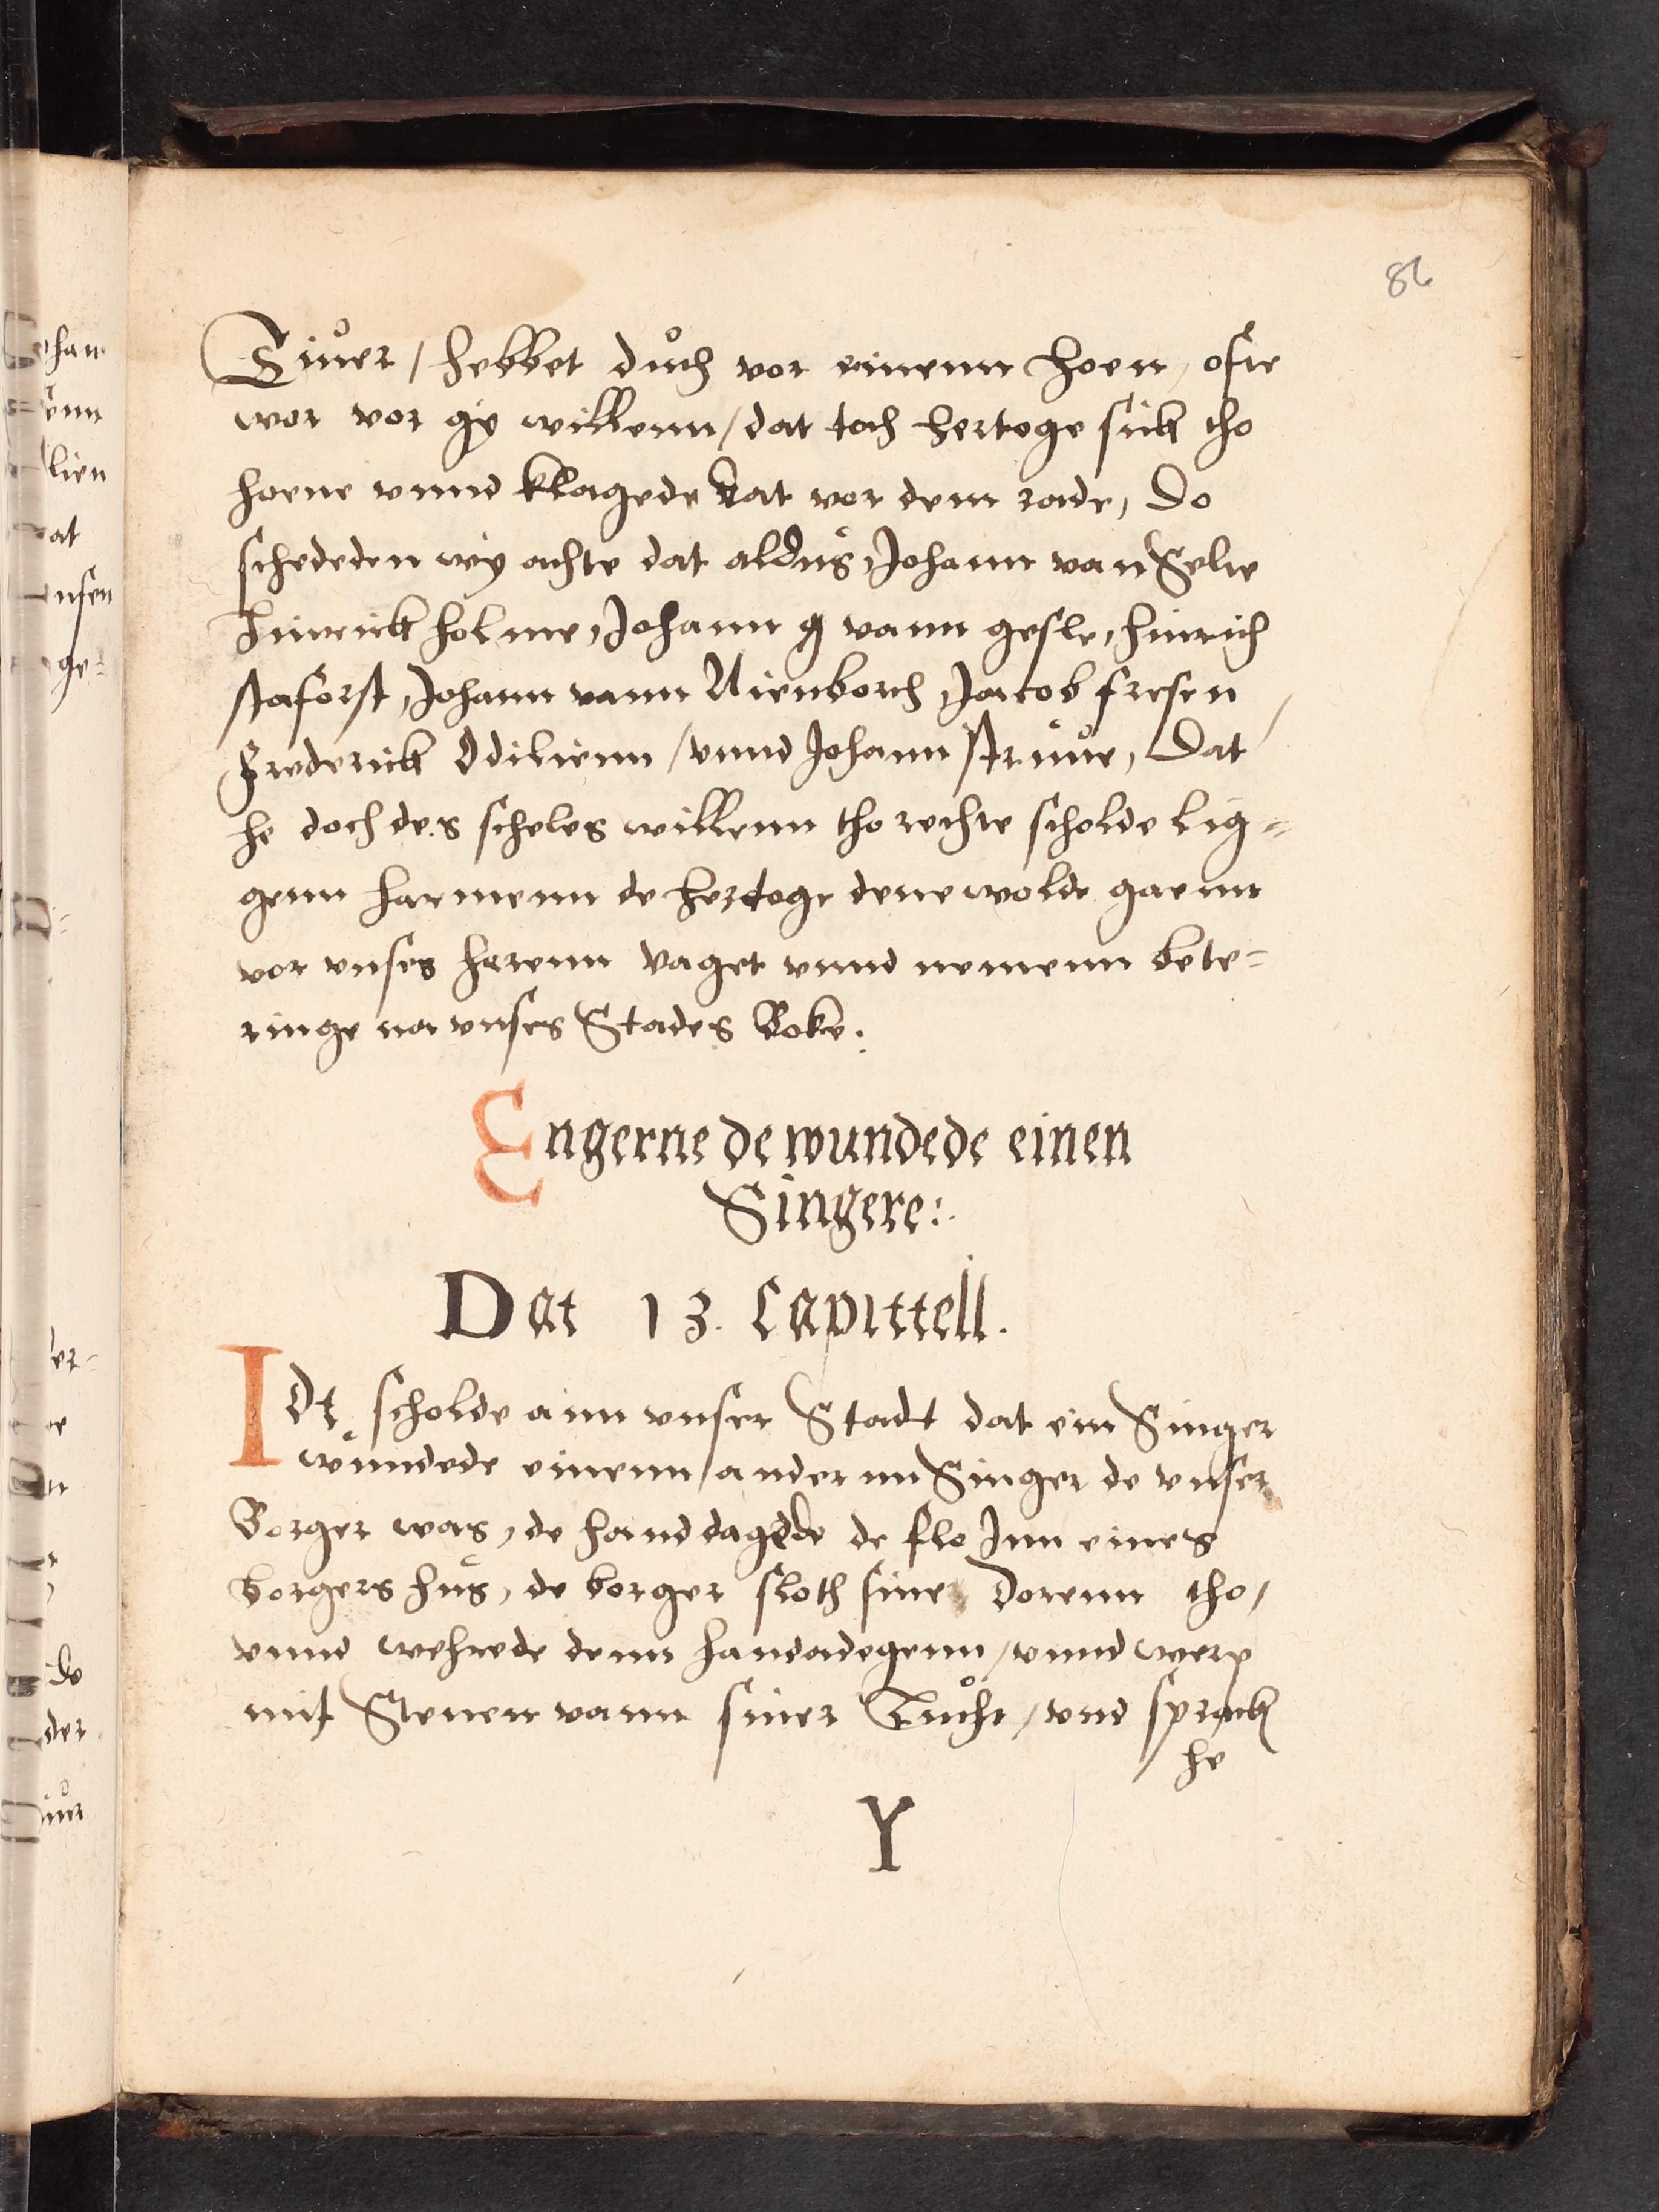 86
Siuͦer / hebbet duͦch vor einenn hoen, ofte
wor vor gy willenn / dat toch hertoge sick tho
hoene vnnd klagede dat vor dem rade, Do
schededen wy achte dat aldus, Johann van Selie
Hinrick holme, Johann g vann gesle, hinrich
staforst, Johann vann Nienborch, Jacob fresen
Frederick Odilienn / vnnd Johann struͦue, Dat
he doch des scheles willenn tho rechte scholde lig=
genn harmenn de hertoge dene wolde gaenn
vor vnses herenn vaget vnnd nemenn bete=
ringe na vnses Stades Boke.
Engerne de wundede einen
Singere:.
Dat 13. Capittell.
Idt scholde ann vnser Stadt dat ein Singer
wundede einenn andernn Singer de vnser
Borger was, de handdagede de flo Inn eines
borgers hus, de borger sloth sine Dorenn tho,
vnnd wehrede denn handadegenn / vnnd werp
mit Stenen vann siner Tuͦcht, vnd sprack
he
Y